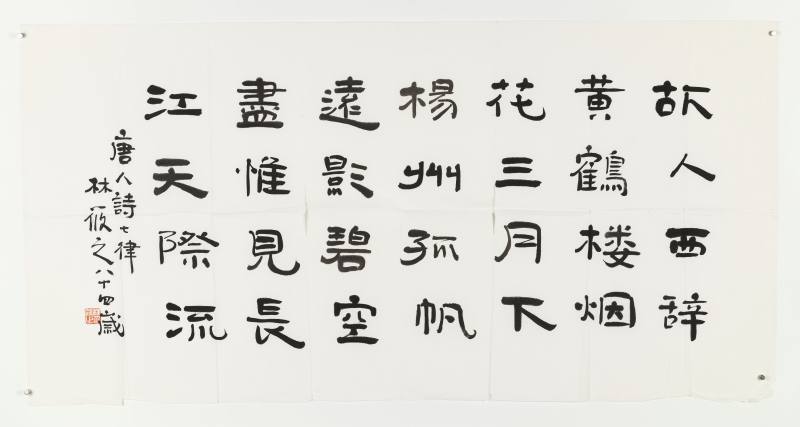 故人西辞
黄鶴楼烟
花三月下
楊州孤帆
遠影碧空
盡惟見長
江天際流
唐人詩七律
林筱之八十四歲